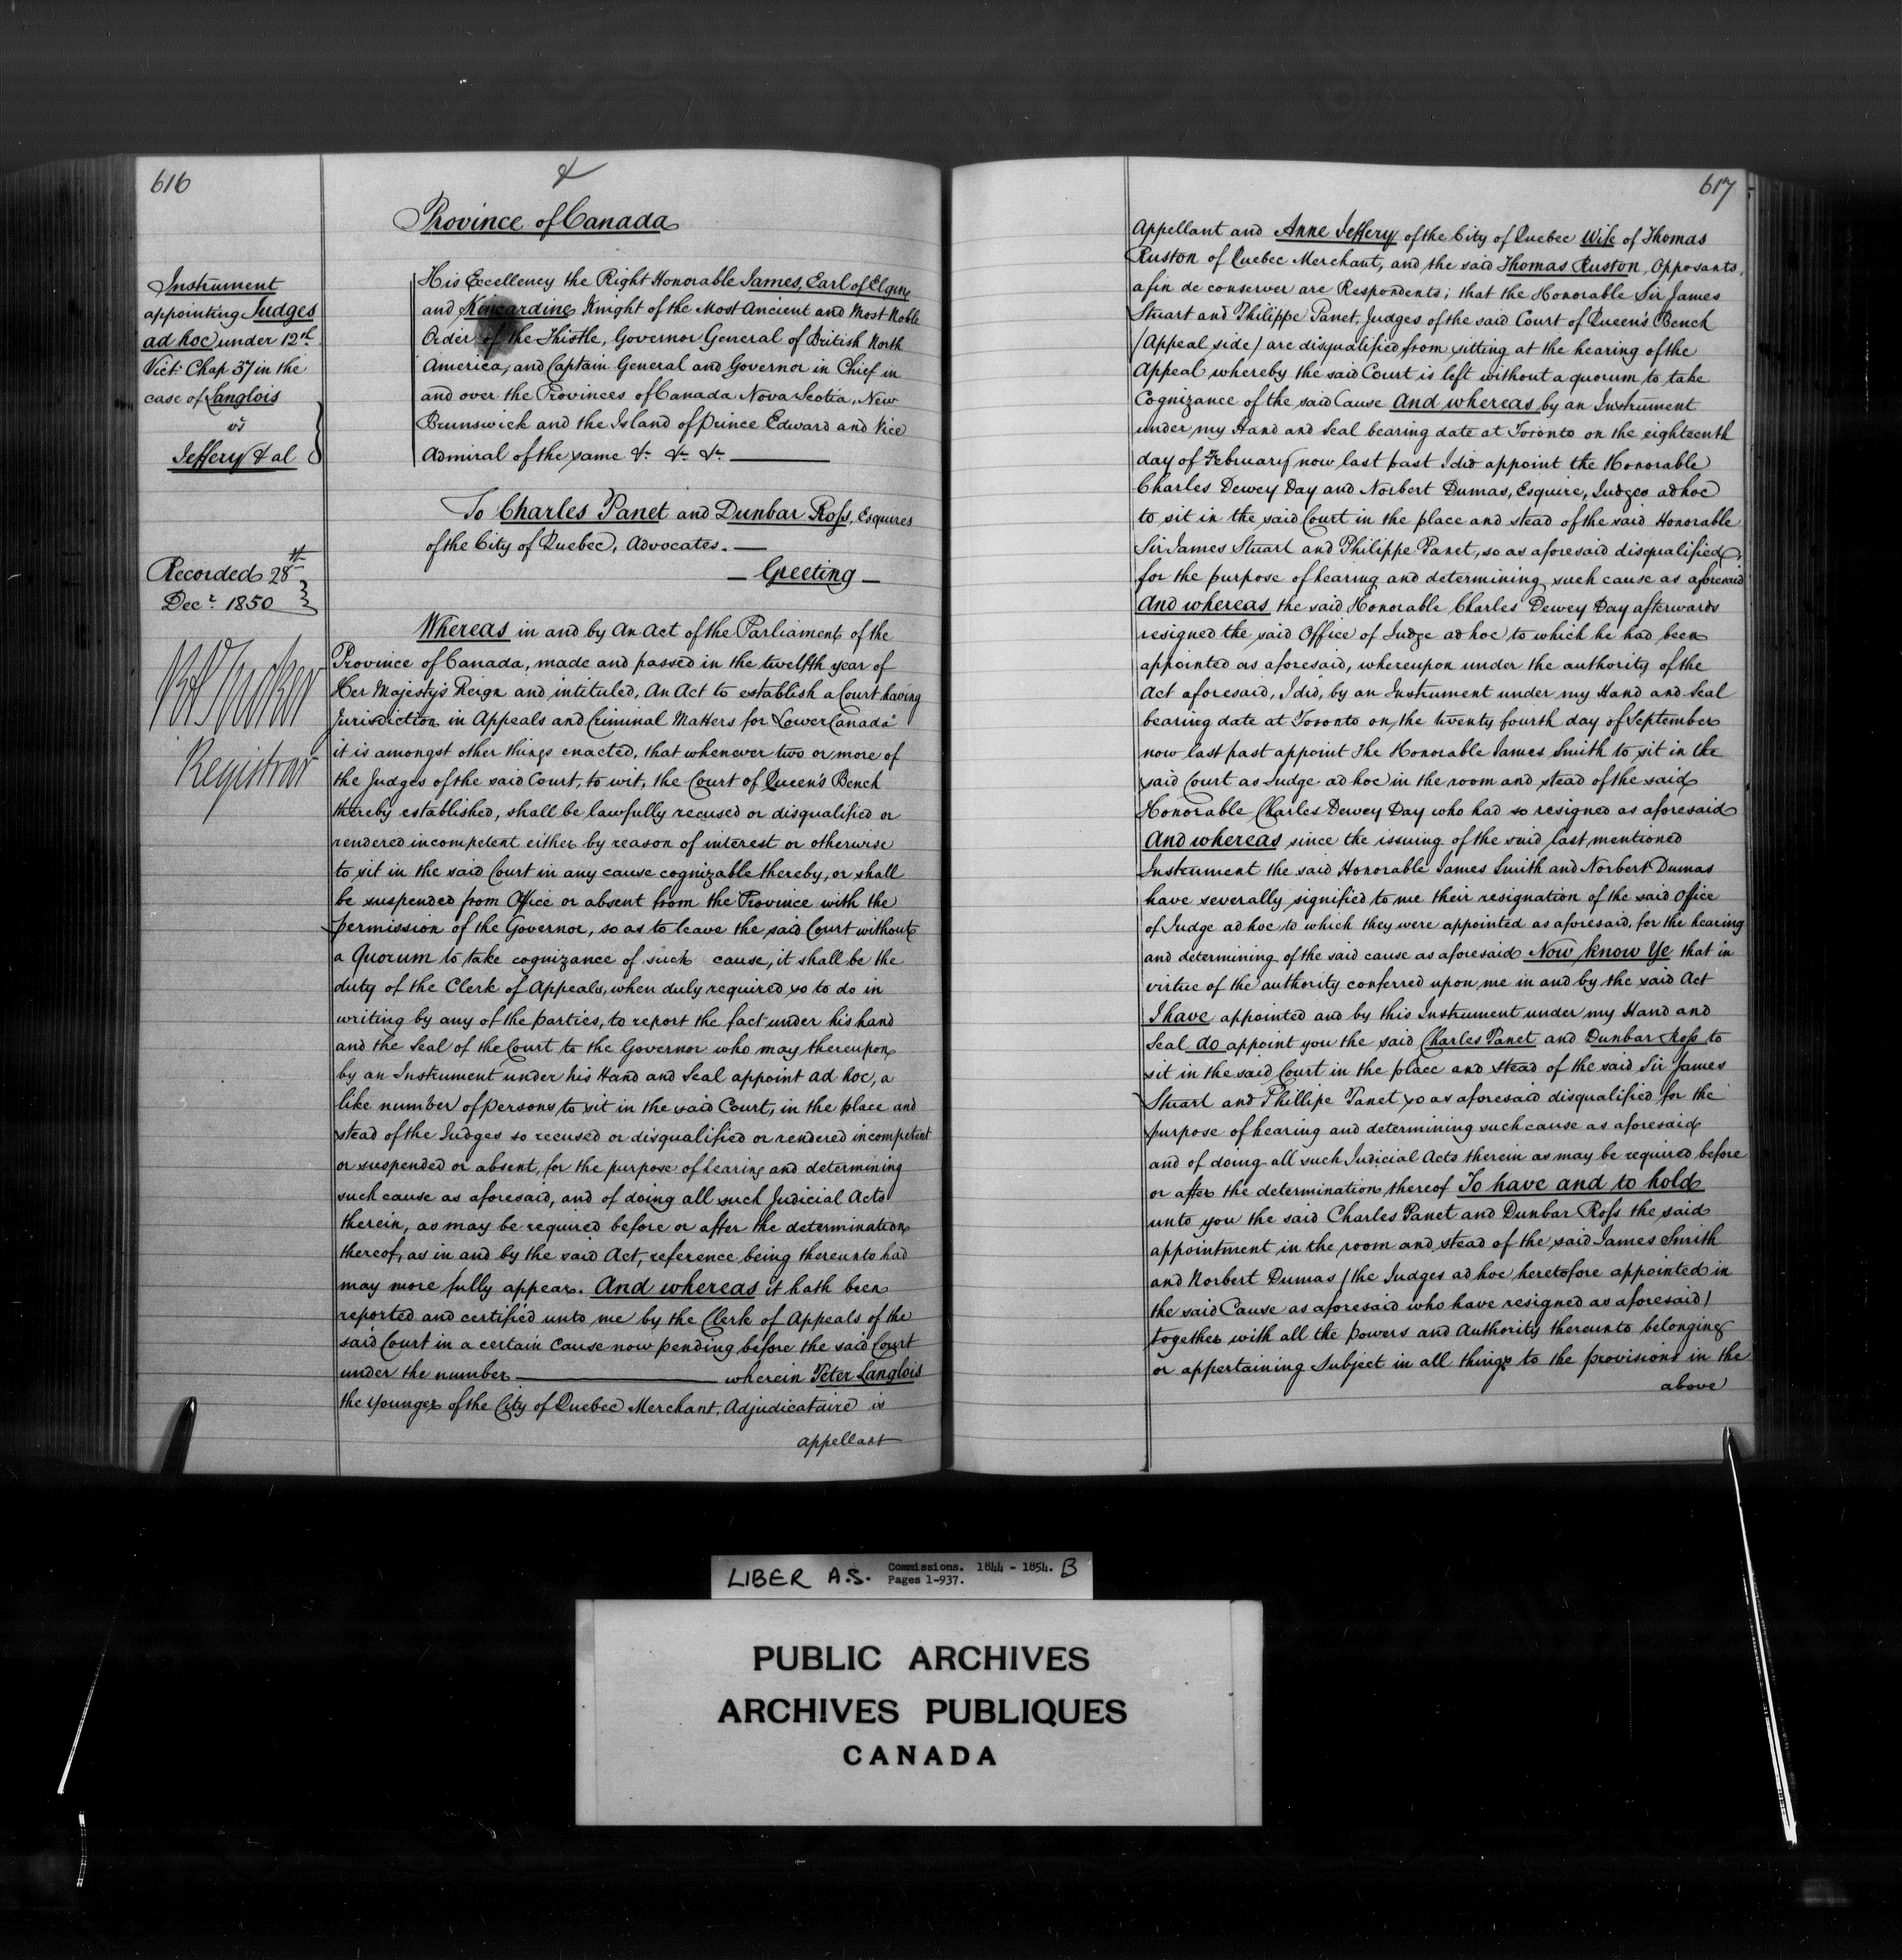 616
&
Province of Canada
Instrument
appointing Judges
ad hoc under 12th
Vict. Chap 37 in the
case of Langlois
vs
Jeffery & al
Recorded 28th
Decr. 1850
Registrar
His Excellency the Right Honorable James, Earl of Elgin
and Kincardine Knight of the Most Ancient and Most Noble
Order of the Thistle, Governor General of British North
America, and Captain General and Governor in Chief in
and over the Provinces of Canada Nova Scotia, New
Brunswick and the Island of Prince Edward and Vice
Admiral of the same &c &c &c
To Charles Panet and Dunbar Ross, Esquires
of the City of Quebec, Advocates. —
— Greeting —
Whereas in and by An Act of the Parliament of the
Province of Canada, made and passed in the twelfth year of
Her Majesty's Reign and intituled, An Act to establish a Court having
Jurisdiction in Appeals and Criminal Matters for Lower Canada"
it is amongst other things enacted, that whenever two or more of
the Judges of the said Court, to wit, the Court of Queen's Bench
thereby established, shall be lawfully recused or disqualified or
rendered incompetent either by reason of interest or otherwise
to sit in the said Court in any cause cognizable thereby, or shall
be suspended from Office or absent from the Province with the
permission of the Governor, so as to leave the said Court without
a Quorum to take cognizance of such cause, it shall be the
duty of the Clerk of Appeals, when duly required so to do in
writing by any of the parties, to report the fact under his hand
and the Seal of the Court to the Governor who may thereupon
by an Instrument under his Hand and Seal appoint ad hoc, a
like number of persons to sit in the said Court, in the place and
stead of the Judges so recused or disqualified or rendered incompetent
or suspended or absent, for the purpose of hearing and determining
such cause as aforesaid, and of doing all such Judicial Acts
therein, as may be required before or after the determination
thereof, as in and by the said Act, reference being thereunto had
may more fully appear. And whereas it hath been
reported and certified unto me by the Clerk of Appeals of the
said Court in a certain cause now pending before the said Court
under the number ———— wherein Peter Langlois
the younger of the City of Quebec Merchant, Adjudicataire is
appellant
617
Appellant and Anne Jeffery of the City of Quebec Wife of Thomas
Ruston of Quebec Merchant, and the said Thomas Ruston, Opposants,
afin de conserver are Respondents; that the Honorable Sir James
Stuart and Philippe Panet, Judges of the said Court of Queen's Bench
(Appeal side) are disqualified from sitting at the hearing of the
Appeal whereby the said Court is left without a quorum to take
Cognizance of the said Cause And whereas by an Instrument
under my Hand and Seal bearing date at Toronto on the eighteenth
day of February now last past I did appoint the Honorable
Charles Dewey Day and Norbert Dumas, Esquire, Judges ad hoc
to sit in the said Court in the place and stead of the said Honorable
Sir James Stuart and Philippe Panet, so as aforesaid disqualified,
for the purpose of hearing and determining such cause as aforesaid
And whereas the said Honorable Charles Dewey Day afterwards
resigned the said Office of Judge ad hoc to which he had been
appointed as aforesaid, whereupon under the authority of the
Act aforesaid, I did, by an Instrument under my Hand and Seal
bearing date at Toronto on the twenty fourth day of September
now last past appoint The Honorable James Smith to sit in the
said Court as Judge ad hoc in the room and stead of the said
Honorable Charles Dewey Day who had so resigned as aforesaid
And whereas since the issuing of the said last mentioned
Instrument the said Honorable James Smith and Norbert Dumas
have severally signified to me their resignation of the said Office
of Judge ad hoc to which they were appointed as aforesaid, for the hearing
and determining of the said cause as aforesaid Now know Ye that in
virtue of the authority conferred upon me in and by the said Act
I have appointed and by this Instrument under my Hand and
Seal do appoint you the said Charles Panet and Dunbar Ross to
sit in the said Court in the place and stead of the said Sir James
Stuart and Phillipe Panet so as aforesaid disqualified for the
purpose of hearing and determining such cause as aforesaid
and of doing all such Judicial Acts therein as may be required before
or after the determination thereof To have and to hold
unto you the said Charles Panet and Dunbar Ross the said
appointment in the room and stead of the said James Smith
and Norbert Dumas (the Judges ad hoc heretofore appointed in
the said Cause as aforesaid who have resigned as aforesaid)
together with all the powers and Authority thereunto belonging
or appertaining Subject in all things to the provisions in the
above
LIBER A.S. Commissions. 1844 - 1854. B
Pages 1-937.
PUBLIC ARCHIVES
ARCHIVES PUBLIQUES
CANADA